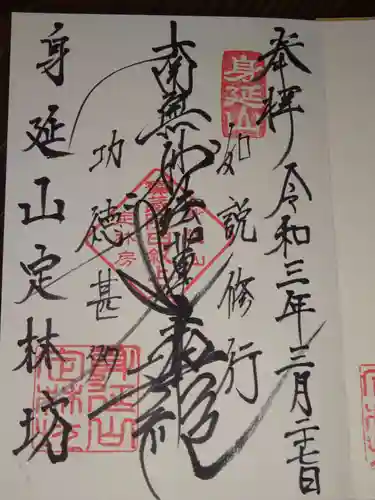 奉拝 令和三年三月二十七日
身延山
如説修行
南無妙法蓮華経
功徳甚多
身延山定林坊